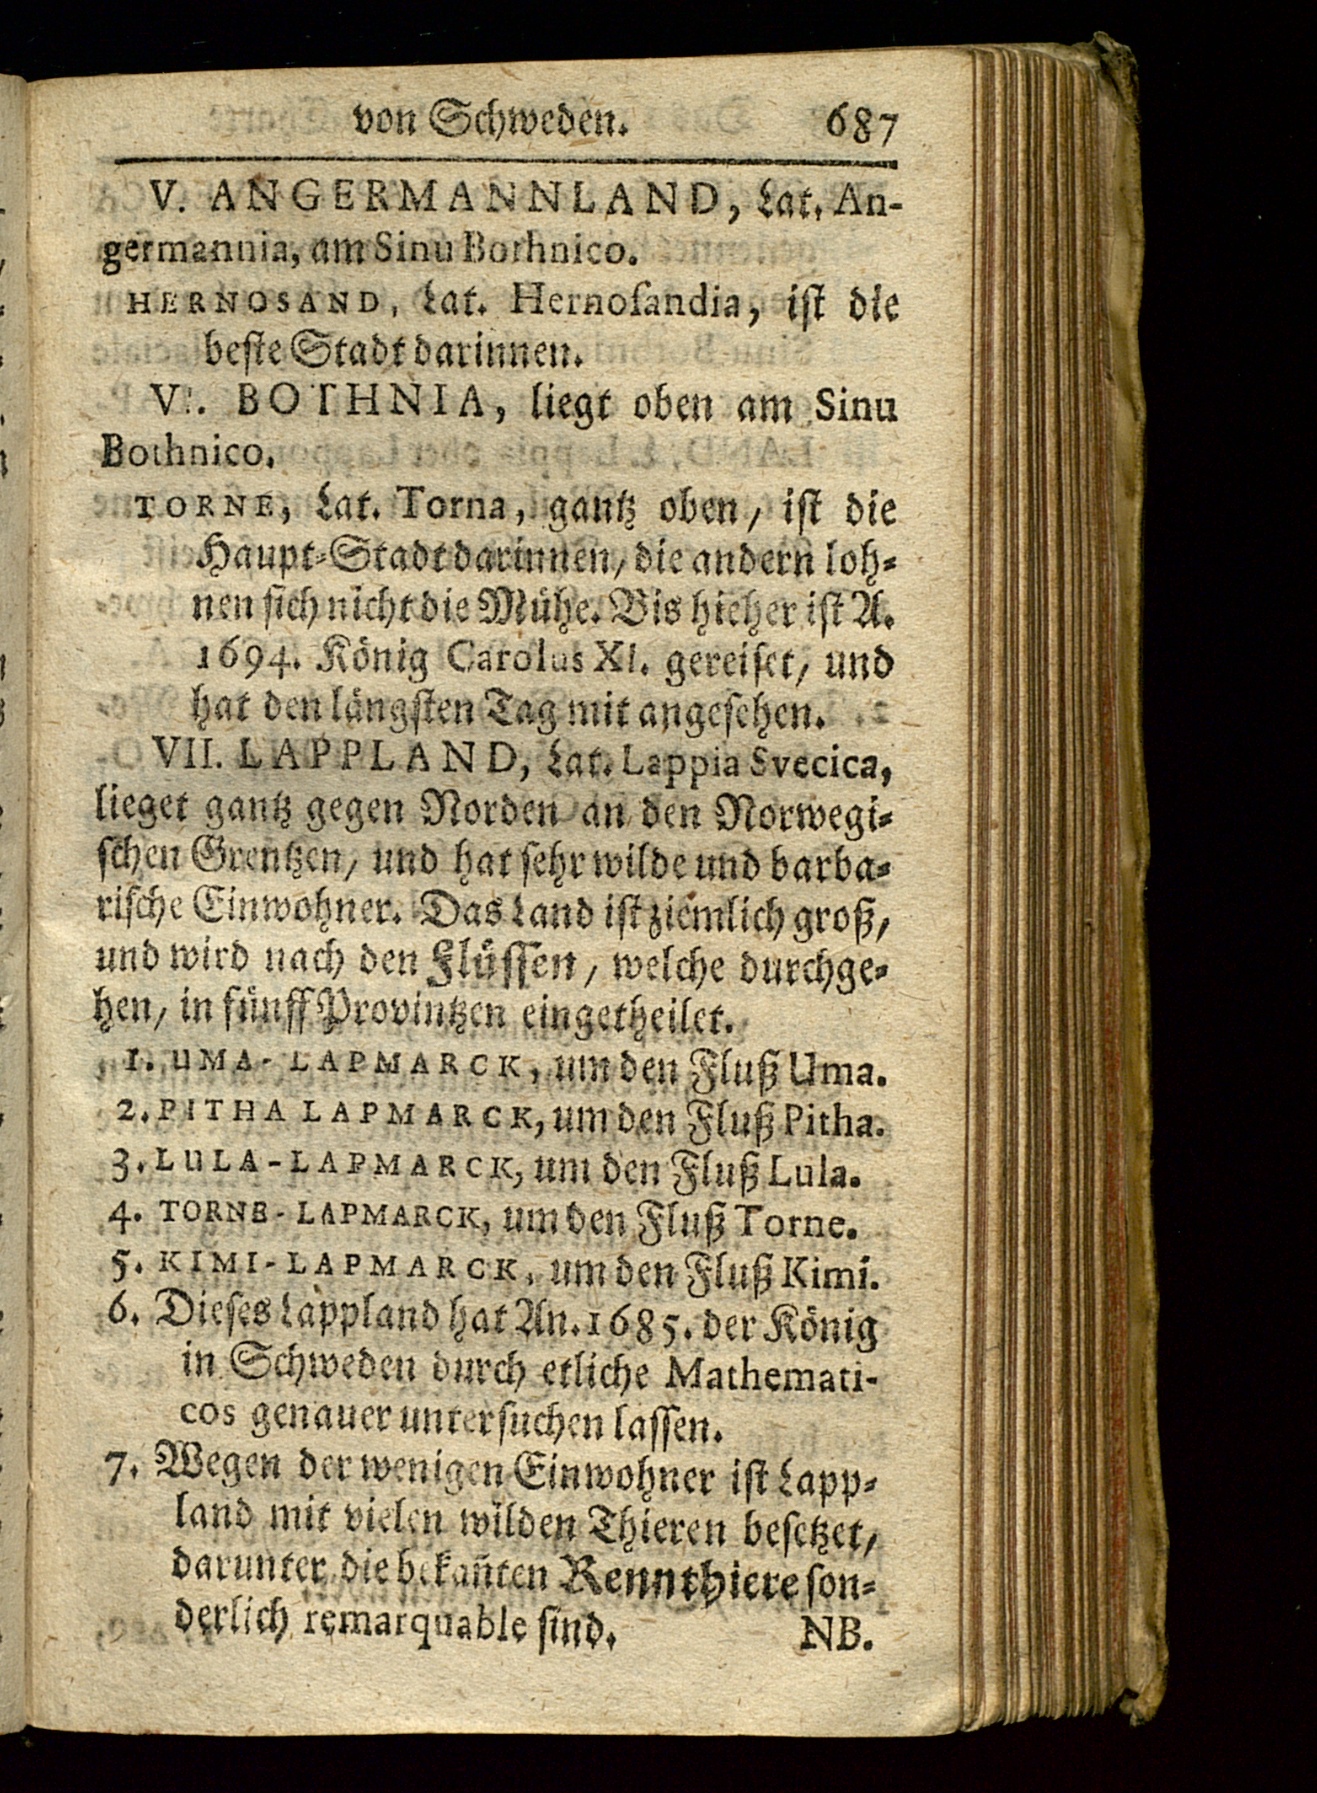 von Schweden. 687
V. ANGERMANNLAND, Lat. An-
germannia, am Sinu Bothnico.
HERNOSAND, Lat. Hernoſandia, iſt die
beſte Stadt darinnen.
VI. BOTHNIA, liegt oben am Sinu
Bothnico.
TORNE, Lat. Torna, gantz oben / iſt die
Haupt-Stadt darinnen / die andern loh-
nen ſich nicht die Mühe. Bis hieher iſt A.
1694. König Carolus XI. gereiſet / und
hat den längſten Tag mit angeſehen.
VII. LAPPLAND, Lat. Lappia Svecica,
lieget gantz gegen Norden an den Norwegi-
ſchen Grentzen / und hat ſehr wilde und barba-
riſche Einwohner. Das Land iſt ziemlich groß /
und wird nach den Flüſſen / welche durchge-
hen / in fünff Provintzen eingetheilet.
1. UMA-LAPMARCK, um den Fluß Uma.
2. PITHA LAPMARCK, um den Fluß Pitha.
3. LULA-LAPMARCK, um den Fluß Lula.
4. TORNE-LAPMARCK, um den Fluß Torne.
5. KIMI-LAPMARCK, um den Fluß Kimi.
6. Dieſes Lappland hat An. 1685. der König
in Schweden durch etliche Mathemati-
cos genauer unterſuchen laſſen.
7. Wegen der wenigen Einwohner iſt Lapp-
land mit vielen wilden Thieren beſetzet /
darunter die bekañten Rennthiere ſon-
derlich remarquable ſind. NB.